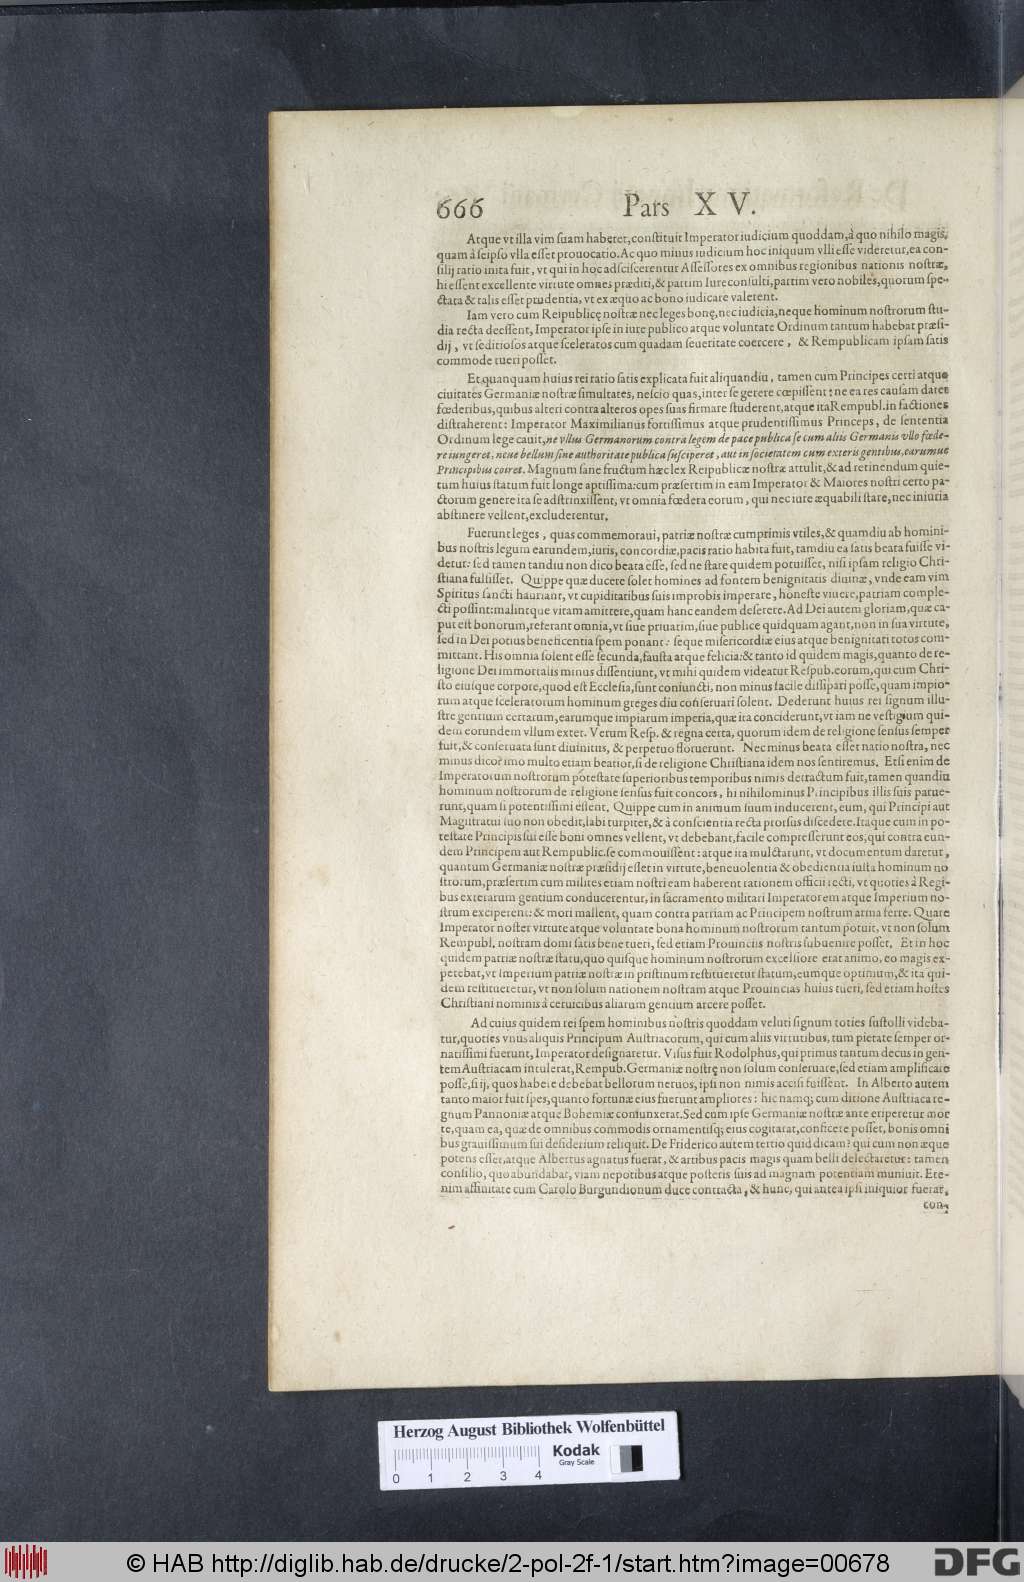 666 Pars X V.
Atque vt illa vim suam haberet, constituit Imperator iudicium quoddam, à quo nihilo magis,
quam à seipso vlla esset prouocatio. Ac quo minus iudicium hoc iniquum vlli esse videretur, ea con-
silij ratio inita fuit, vt qui in hoc adsciscerentur Assessores ex omnibus regionibus nationis nostræ,
hi essent excellente virtute omnes præditi, & partim Iureconsulti, partim vero nobiles, quorum spe-
ctata & talis esset prudentia, vt ex æquo ac bono iudicare valerent.
Iam vero cum Reipublicę nostræ nec leges bonę, nec iudicia, neque hominum nostrorum stu-
dia recta deessent, Imperator ipse in iure publico atque voluntate Ordinum tantum habebat præsi-
dij, vt seditiosos atque sceleratos cum quadam seueritate coercere, & Rempublicam ipsam satis
commode tueri posset.
Et quanquam huius rei ratio satis explicata fuit aliquandiu, tamen cum Principes certi atque
ciuitates Germaniæ nostræ simultates, nescio quas, inter se gerere cœpissent: ne ea res causam daret
fœderibus, quibus alteri contra alteros opes suas firmare studerent, atque ita Rempubl. in factiones
distraherent: Imperator Maximilianus fortissimus atque prudentissimus Princeps, de sententia
Ordinum lege cauit, ne vllus Germanorum contra legem de pace publica se cum aliis Germanis vllo fœde-
re iungeret, neue bellum sine authoritate publica susciperet, aut in societatem cum exteris gentibus, earumue
Principibus coiret. Magnum sane fructum hæc lex Reipublicæ nostræ attulit, & ad retinendum quie-
tum huius statum fuit longe aptissima: cum præsertim in eam Imperator & Maiores nostri certo pa-
ctorum genere ita se adstrinxissent, vt omnia fœdera eorum, qui nec iure æquabili stare, nec iniuria
abstinere vellent, excluderentur.
Fuerunt leges, quas commemoraui, patriæ nostræ cumprimis vtiles, & quamdiu ab homini-
bus nostris legum earundem, iuris, concordiæ, pacis ratio habita fuit, tamdiu ea satis beata fuisse vi-
detur: sed tamen tandiu non dico beata esse, sed ne stare quidem potuisset, nisi ipsam religio Chri-
stiana fulsisset. Quippe quæ ducere solet homines ad fontem benignitatis diuinæ, vnde eam vim
Spiritus sancti hauriant, vt cupiditatibus suis improbis imperare, honeste viuere, patriam comple-
cti possint: malintque vitam amittere, quam hanc eandem deserere. Ad Dei autem gloriam, quæ ca-
put est bonorum, referant omnia, vt siue priuatim, siue publice quidquam agant, non in sua virtute,
sed in Dei potius beneficentia spem ponant: seque misericordiæ eius atque benignitati totos com-
mittant. His omnia solent esse secunda, fausta atque felicia: & tanto id quidem magis, quanto de re-
ligione Dei immortalis minus dissentiunt, vt mihi quidem videatur Respub. eorum, qui cum Chri-
sto eiusque corpore, quod est Ecclesia, sunt coniuncti, non minus facile dissipari posse, quam impio-
rum atque sceleratorum hominum greges diu conseruari solent. Dederunt huius rei signum illu-
stre gentium certarum, earumque impiarum imperia, quæ ita conciderunt, vt iam ne vestigium qui-
dem eorundem vllum extet. Verum Resp. & regna certa, quorum idem de religione sensus semper
fuit, & conseruata sunt diuinitus, & perpetuo floruerunt. Nec minus beata esset natio nostra, nec
minus dico? imo multo etiam beatior, si de religione Christiana idem nos sentiremus. Etsi enim de
Imperatorum nostrorum potestate superioribus temporibus nimis detractum fuit, tamen quandiu
hominum nostrorum de religione sensus fuit concors, hi nihilominus Principibus illis suis parue-
runt, quam si potentissimi essent. Quippe cum in animum suum inducerent, eum, qui Principi aut
Magistratui suo non obedit, labi turpiter, & à conscientia recta prorsus discedere. Itaque cum in po-
testate Principis sui esse boni omnes vellent, vt debebant, facile compresserunt eos, qui contra eun-
dem Principem aut Rempublic. se commouissent: atque ita mulctarunt, vt documentum daretur,
quantum Germaniæ nostræ præsidij esset in virtute, beneuolentia & obedientia iusta hominum no
strorum, præsertim cum milites etiam nostri eam haberent rationem officii recti, vt quoties à Regi-
bus exterarum gentium conducerentur, in sacramento militari Imperatorem atque Imperium no-
strum exciperent: & mori mallent, quam contra patriam ac Principem nostrum arma ferre. Quare
Imperator noster virtute atque voluntate bona hominum nostrorum tantum potuit, vt non solum
Rempubl. nostram domi satis bene tueri, sed etiam Prouinciis nostris subuenire posset. Et in hoc
quidem patriæ nostræ statu, quo quisque hominum nostrorum excelsiore erat animo, eo magis ex-
petebat, vt Imperium patriæ nostræ in pristinum restitueretur statum, eumque optimum, & ita qui-
dem restitueretur, vt non solum nationem nostram atque Prouincias huius tueri, sed etiam hostes
Christiani nominis à ceruicibus aliarum gentium arcere posset.
Ad cuius quidem rei spem hominibus nostris quoddam veluti signum toties sustolli videba-
tur, quoties vnus aliquis Principum Austriacorum, qui cum aliis virtutibus, tum pietate semper or-
natissimi fuerunt, Imperator designaretur. Visus fuit Rodolphus, qui primus tantum decus in gen-
tem Austriacam intulerat, Rempub. Germaniæ nostrę non solum conseruare, sed etiam amplificare
posse, si ij, quos habere debebat bellorum neruos, ipsi non nimis accisi fuissent. In Alberto autem
tanto maior fuit spes, quanto fortunæ eius fuerunt ampliores: hic namq; cum ditione Austriaca re-
gnum Pannoniæ atque Bohemiæ coniunxerat. Sed cum ipse Germaniæ nostræ ante eriperetur mor
te, quam ea, quæ de omnibus commodis ornamentisq; eius cogitarat, conficere posset, bonis omni
bus grauissimum sui desiderium reliquit. De Friderico autem tertio quid dicam? qui cum non æque
potens esset, atque Albertus agnatus fuerat, & artibus pacis magis quam belli delectaretur: tamen
consilio, quo abundabat, viam nepotibus atque posteris suis ad magnam potentiam muniuit. Ete-
nim affinitate cum Carolo Burgundionum duce contracta, & hunc, qui antea ipsi iniquior fuerat,
con-
Herzog August Bibliothek Wolfenbüttel
Kodak
Gray Scale
0 1 2 3 4
© HAB http://diglib.hab.de/drucke/2-pol-2f-1/start.htm?image=00678
DFG